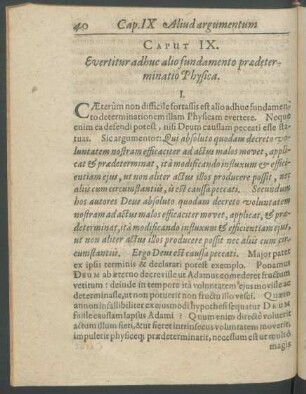 40 Cap. IX Aliud argumentum
CAPUT IX.
Evertitur adhuc alio fundamento prædeter-
minatio Physica.
I.
CÆterùm non difficile fortassis est alio adhuc fundamen-
to determinationem illam Physicam evertere. Neque
enim ea defendi potest, nisi Deum caussam peccati esse sta-
tuas. Sic argumentor: Qui absoluto quodam decreto vo-
luntatem nostram efficaciter ad actus malos movet, appli-
cat & prædeterminat, itâ modificando influxum & effici-
entiam ejus, ut non aliter actus illos producere possit, nec
aliis cum circumstantiis, is est caussa peccati. Secundum
hos autores Deus absoluto quodam decreto voluntatem
nostram ad actus malos efficaciter movet, applicat, & præ-
determinat, itâ modificando influxum & efficientiam ejus,
ut non aliter actus illos producere possit nec aliis cum cir-
cumstantiis. Ergo Deus est caussa peccati. Major patet
ex ipsis terminis & declarari potest exemplo. Ponamus
DEUM ab æterno decrevisse ut Adamus comederet fructum
vetitum: deinde in tempore itâ voluntatem ejus movisse ac
determinasse, ut non potuerit non fructu illo vesci. Quæro
annon infallibiliter ex ejusmodi hypothesi sequatur DEUM
fuisse caussam lapsus Adami? Quum enim directè voluerit
actum illum fieri, & ut fieret intrinsecus voluntatem moverit,
impulerit physiceq; prædeterminarit, necessum est ut multò
magis